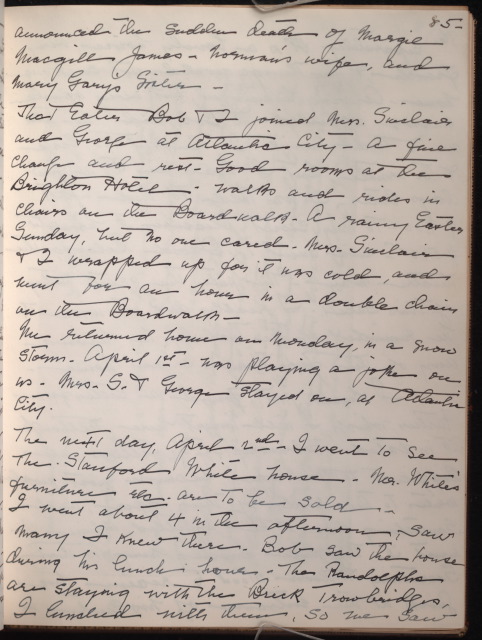 85-
announced the sudden death of Margie
Macgill James - Norman's wife, and
Mary Gary's Sister -
That Easter Bob & I joined Mrs. Sinclair
and George at Atlantic City - A fine
change and rest - Good rooms at the
Brighton Hotel - walks and rides in
chairs on the Boardwalk - A rainy Easter
Sunday, but no one cared - Mrs. Sinclair
& I wrapped up for it was cold, and
went for an hour in a double chair
on the Boardwalk -
We returned home on Monday, in a snow
storm - April 1st - was playing a joke on
us - Mrs. S. & George stayed on, at Atlantic
City.
The next day, April 2nd - I went to see
The Stanford White house - Mrs. White's
furniture etc. are to be sold -
I went about 4 in the afternoon, saw
many I knew there - Bob saw the house
during his lunch hour - The Randolphs
are staying with the Buck Trowbridges,
I lunched with them, so we saw